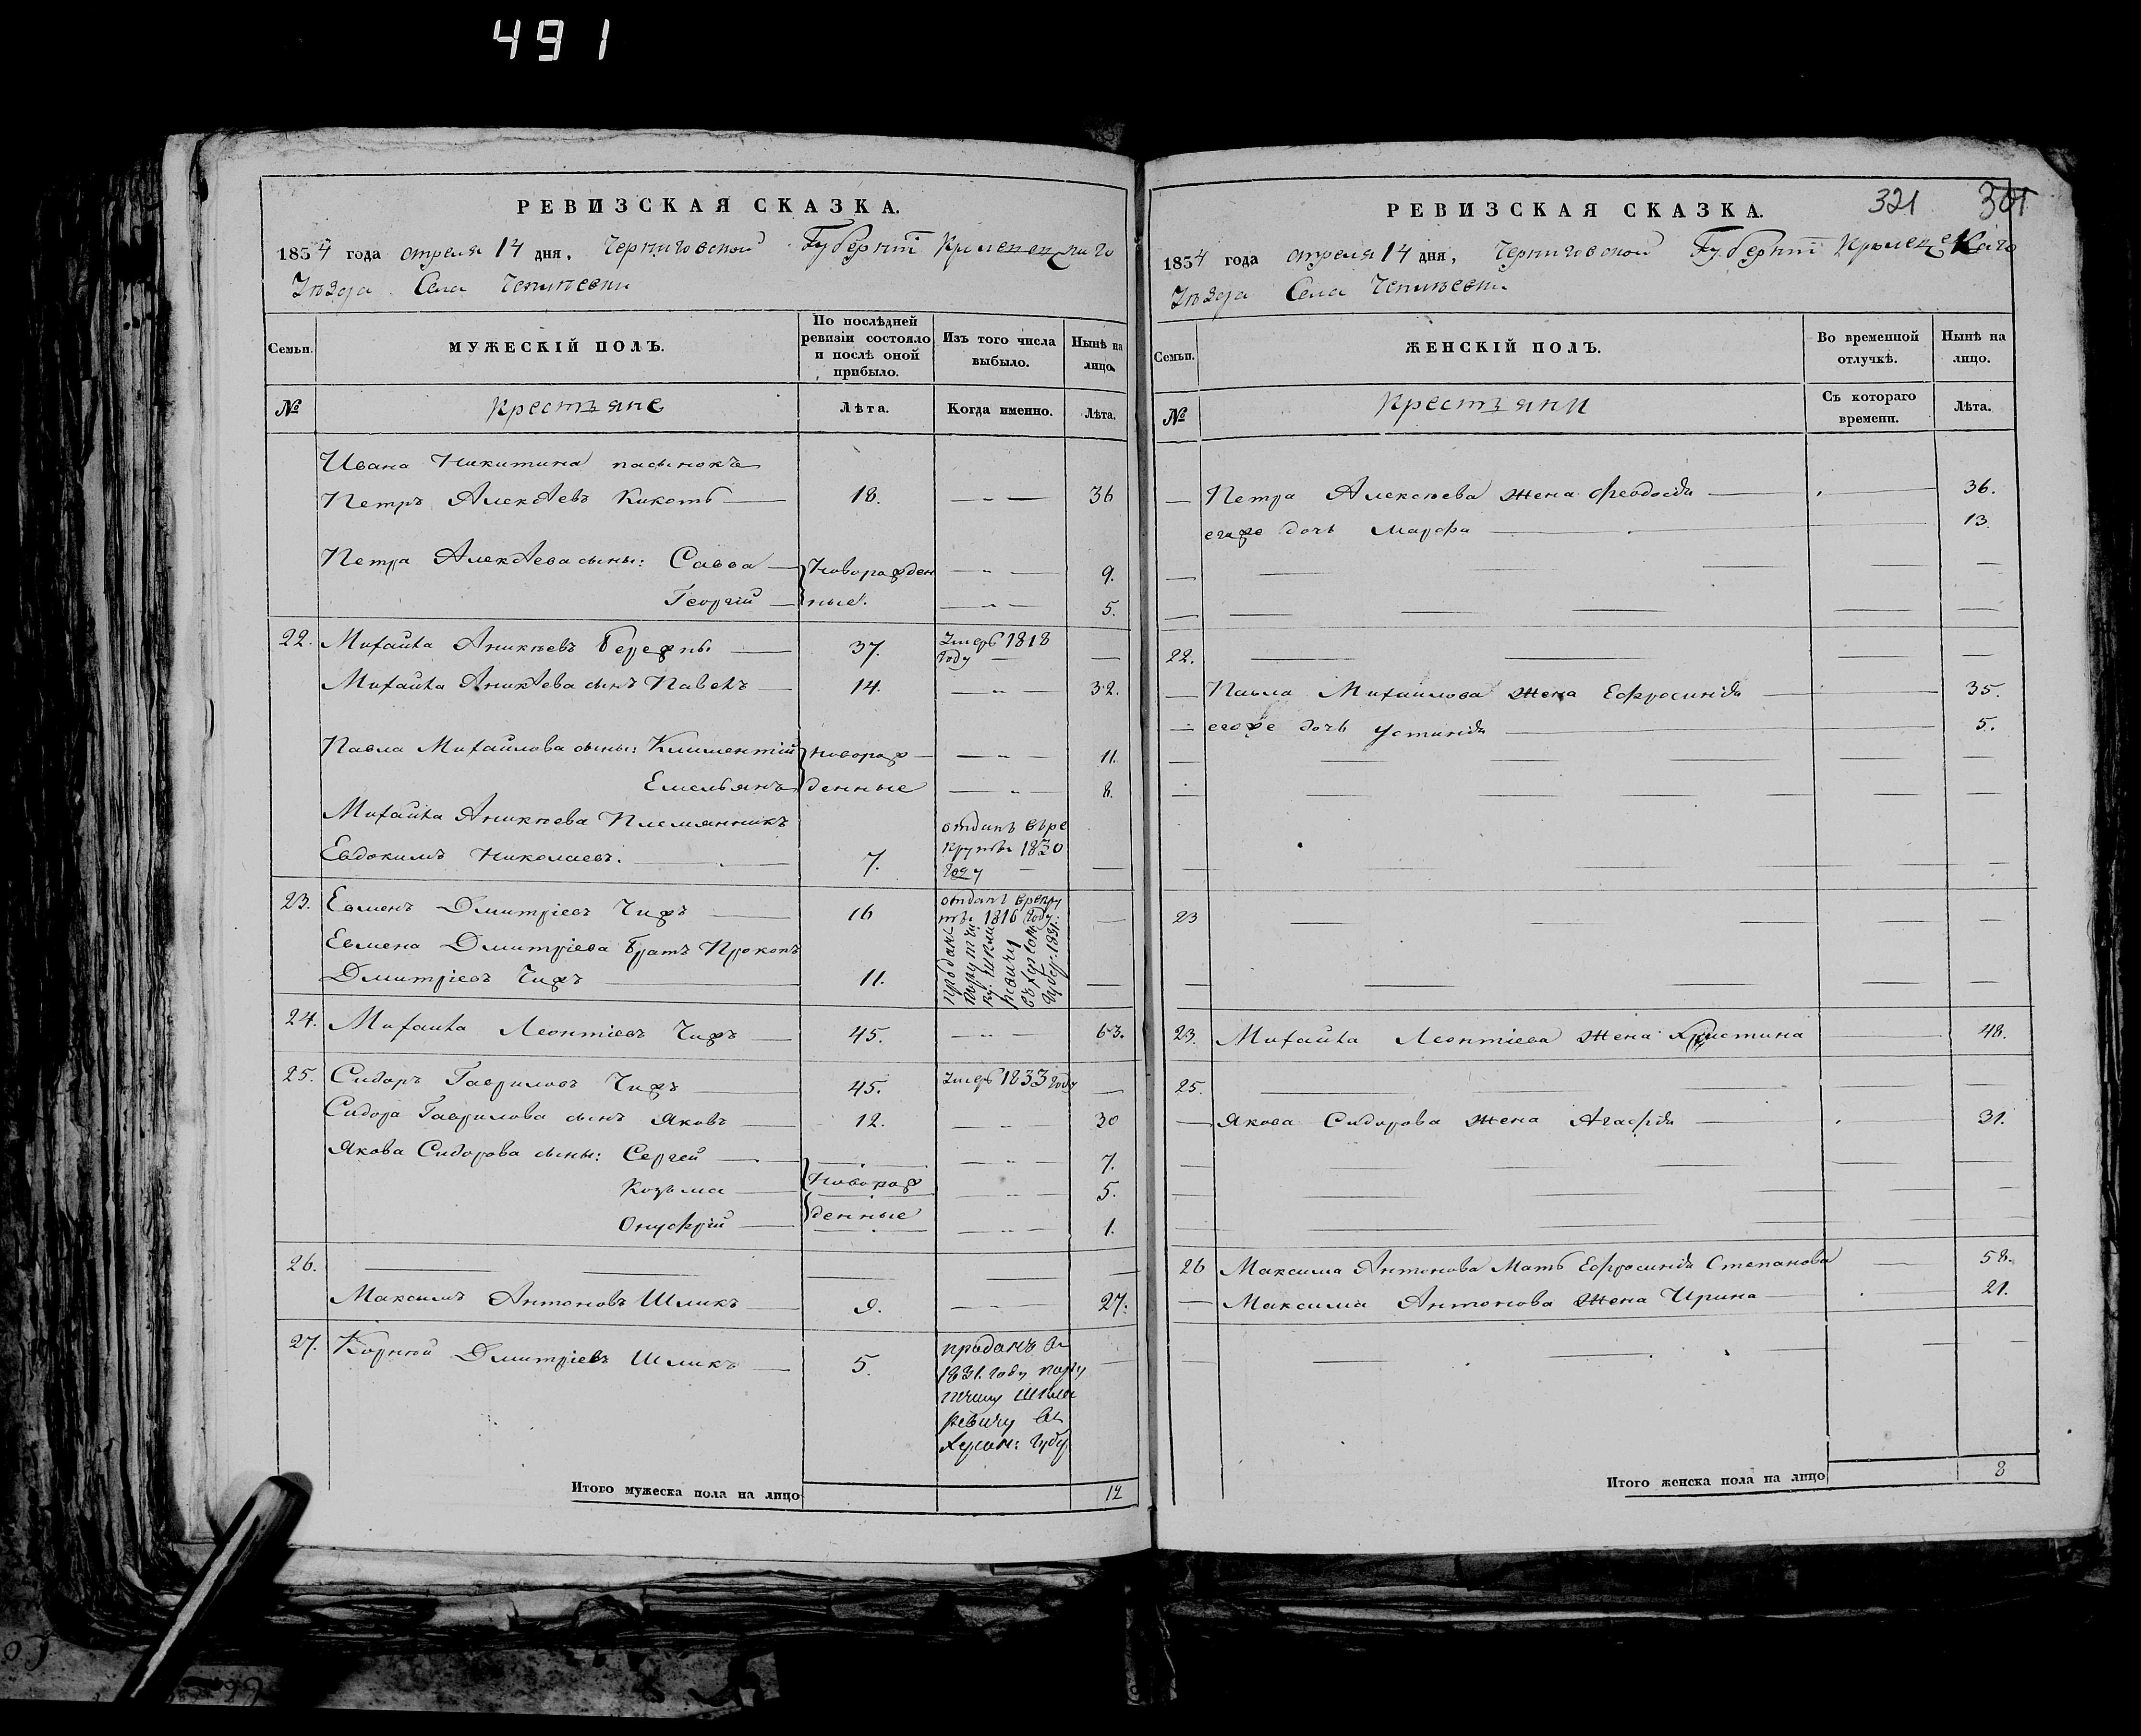 491
РЕВИЗСКАЯ СКАЗКА.
1834 года апреля 14 дня, Черниговской Губернiи
Уѣзда Села
Семьи.
МУЖЕСКІЙ ПОЛЪ.
По послѣдней ревизіи состояло и послѣ оной прибыло.
Изъ того числа выбыло.
Нынѣ на лицо.
№
Крестъяне
Лѣта.
Когда именно.
Лѣта.
Ивана Никитина пасынокъ
Петръ Алексѣевъ Кикоть 18. 36
Петра Алексѣева сыны: Савва Новорожден 9.
Георгій ные. 5.
22. Михайла Аникѣевъ 37. Умеръ 1818 году
Михайла Аникѣева сынъ Павелъ 14. 32.
Павла Михайлова сыны: Климентій новорож 11.
Емельянъ денные 8.
Михайла Аникѣева Племянникъ
Евдокимъ Николаевъ. 7. отданъ въ рекруты 1830 году
23. Евменъ Дмитріевъ Чижъ 16 отданъ в рекруты 1816 году.
Евмена Дмитріева братъ Прокопъ
Дмитріевъ Чижъ 11.
24. Михайла Леонтіевъ Чижъ 45. 63.
25. Сидоръ Гавриловъ Чижъ 45. Умеръ 1833 году
Сидора Гаврилова сынъ Яковъ 12. 30
Якова Сидорова сыны: Сергей 7.
Козьма Новорож 5.
Онуфрій денные 1.
26.
Максимъ Антоновъ Шликъ 9. 27.
27. Корней Дмитріевъ Шликъ 5. проданъ въ
1831. году
Итого мужеска пола на лицо 12
321 301
РЕВИЗСКАЯ СКАЗКА.
1834 года апреля 14 дня, Черниговской Губернiи
Уѣзда Села
Семьи.
ЖЕНСКІЙ ПОЛЪ.
Во временной отлучкѣ.
Нынѣ на лицо.
№
Крестъяни
Съ котораго времени.
Лѣта.
Петра Алексѣева жена Феодосія 36.
егоже дочь Марфа 13.
22.
Павла Михайлова жена Ефросинія 35.
егоже дочь Устинія 5.
23
23. Михайла Леонтіева жена Христина 48.
25.
Якова Сидорова жена Агафія 31.
26 Максима Антонова Мать Ефросинія Степанова 58.
Максима Антонова жена Ирина 21.
Итого женска пола на лицо 8